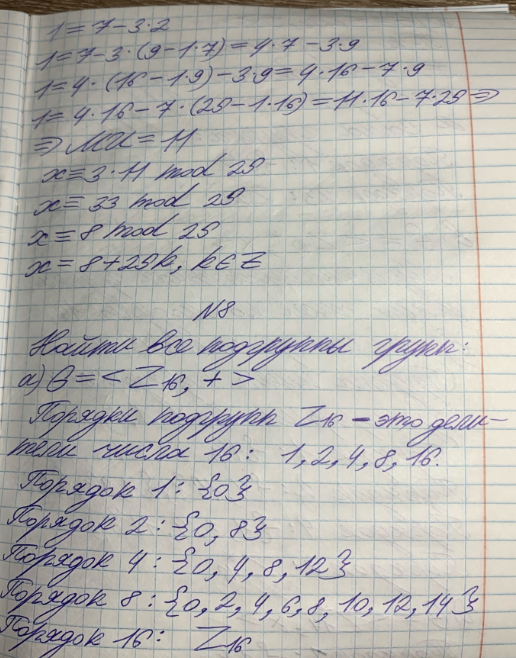 1=7-3·2
1=7-3·(9-1·7)=4·7-3·9
1=4·(16-1·9)-3·9=4·16-7·9
1=4·16-7·(25-1·16)=11·16-7·25 ⇒
⇒ МИ=11
x≡3·11 mod 25
x≡33 mod 25
x≡8 mod 25
x=8+25k, k∈Z
№8
Найти все подгруппы групп:
а) G=<Z₁₆, +>
Порядки подгрупп Z₁₆ - это дели-
тели числа 16: 1, 2, 4, 8, 16.
Порядок 1: {0}
Порядок 2: {0, 8}
Порядок 4: {0, 4, 8, 12}
Порядок 8: {0, 2, 4, 6, 8, 10, 12, 14}
Порядок 16: Z₁₆